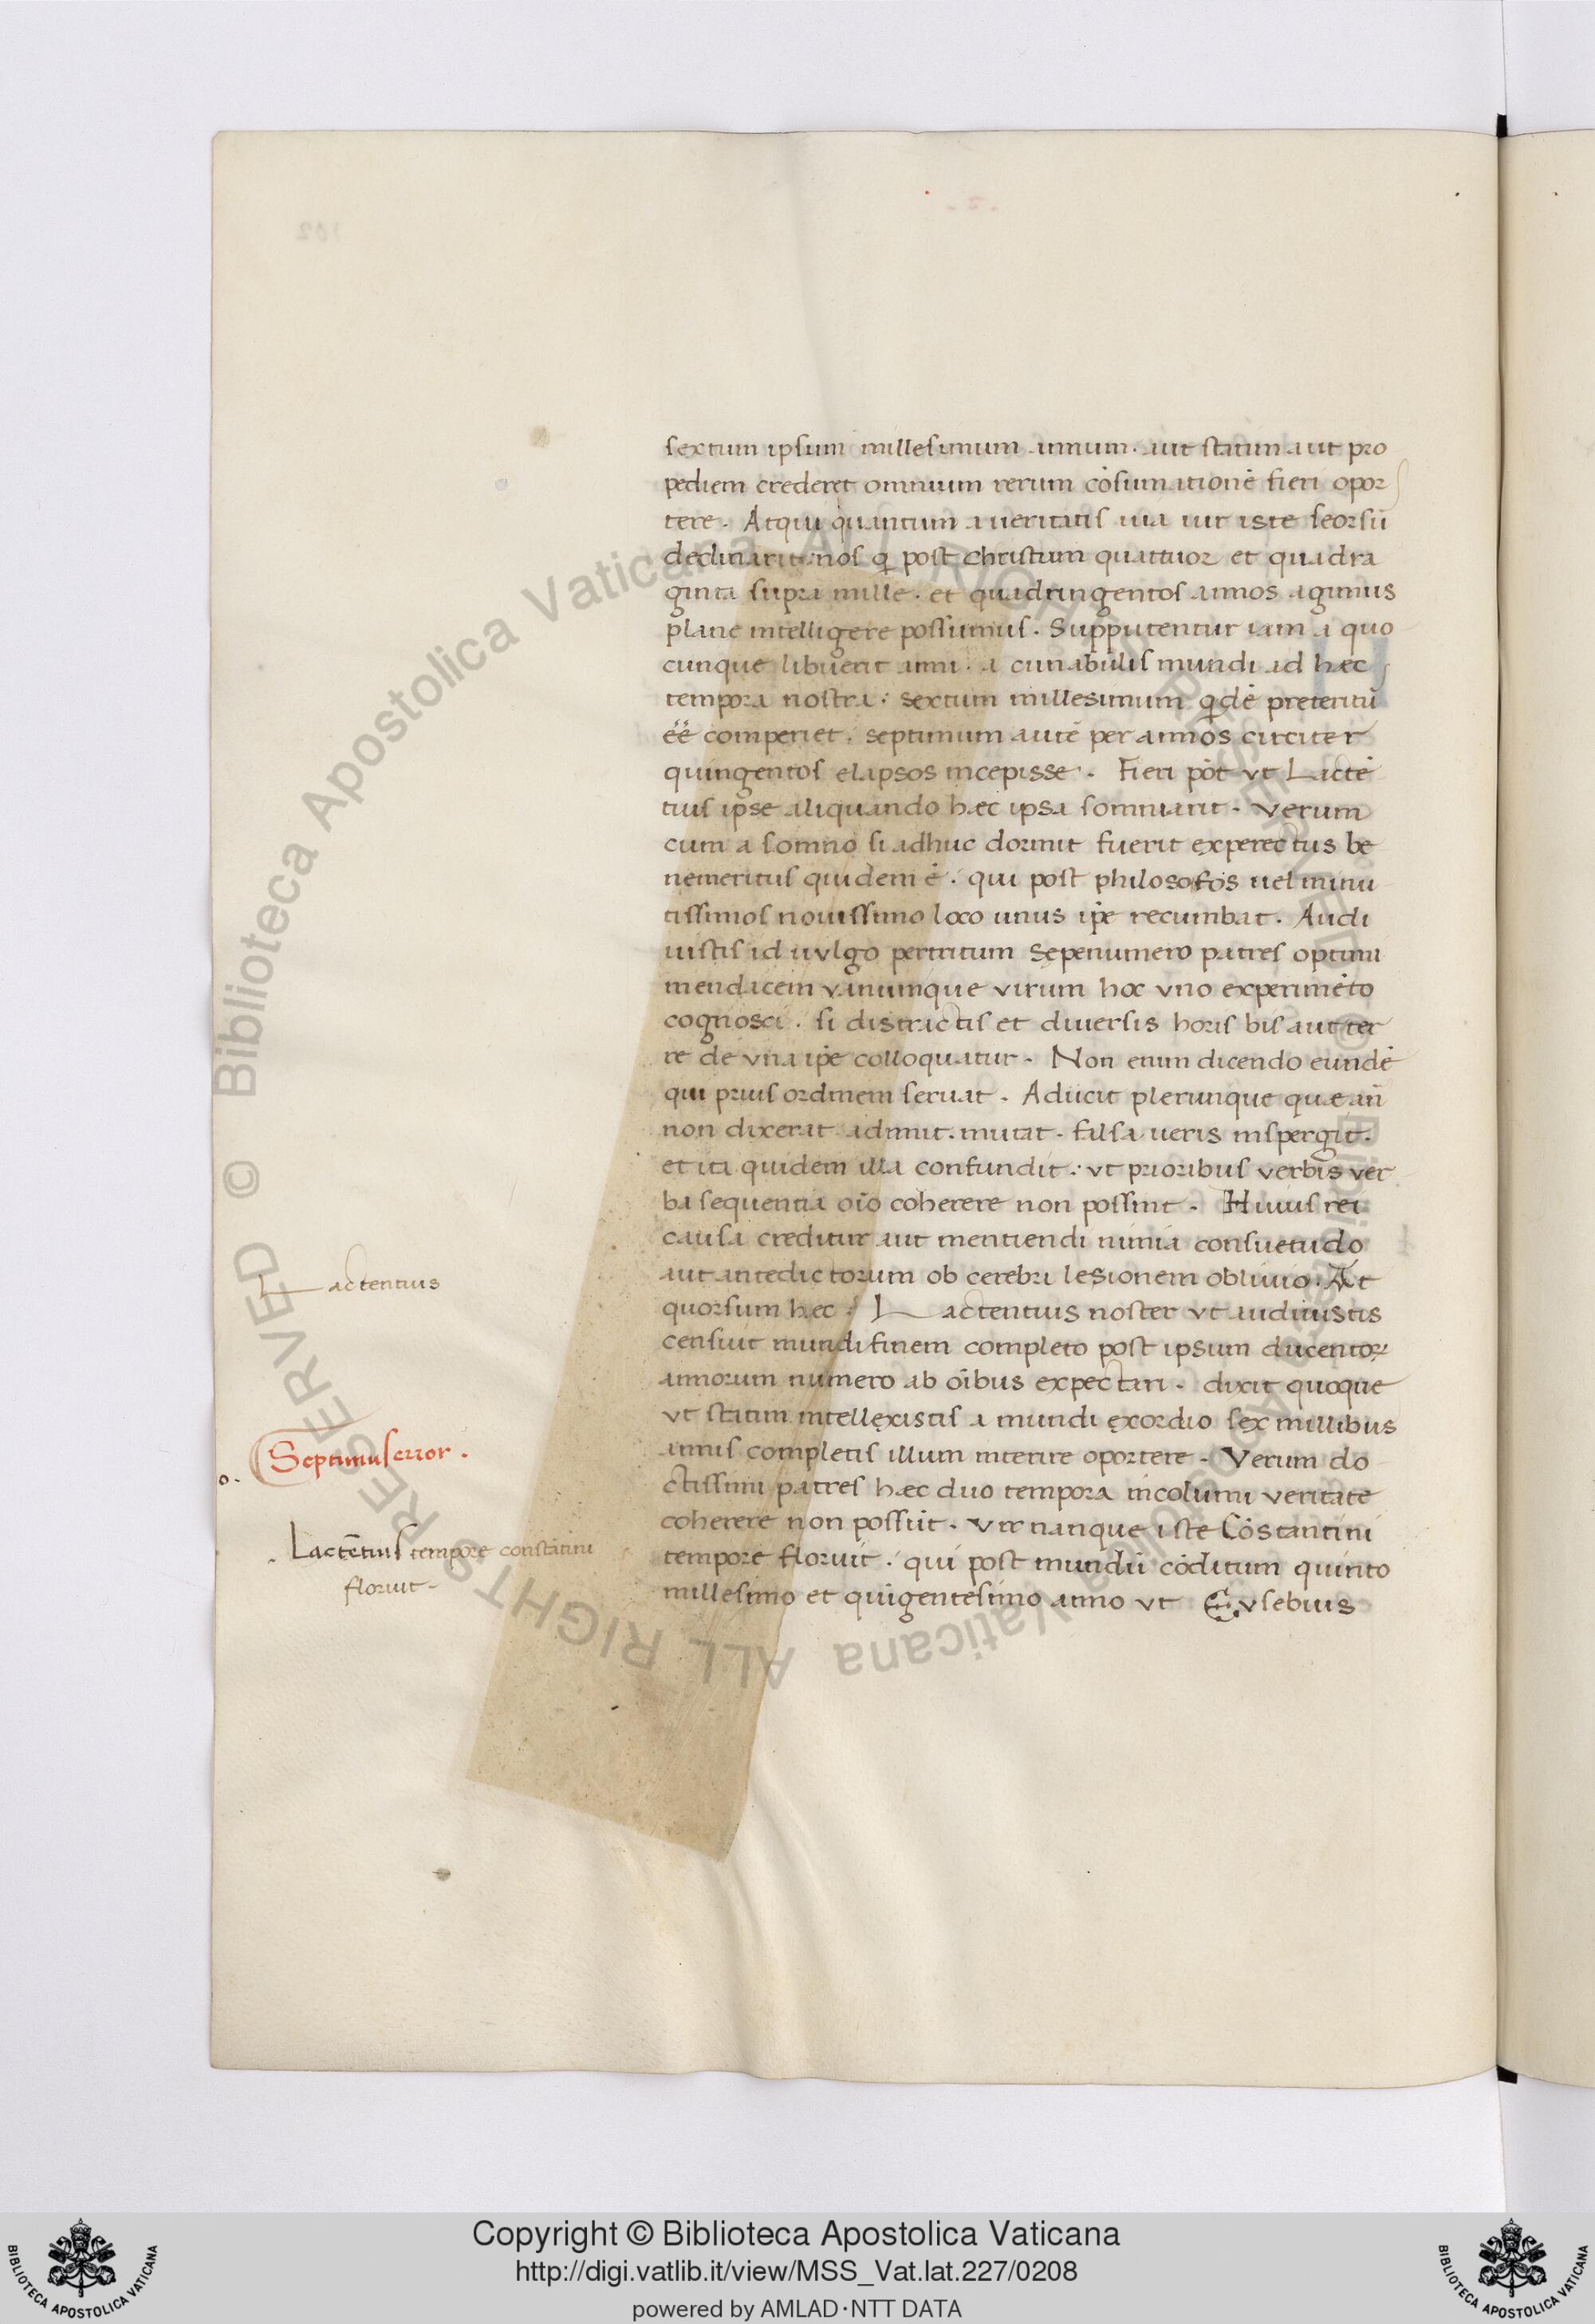 sextum ipsum millesimum annum. aut statim aut pro
pediem crederet omnium rerum cōsumationē fieri opor
tere. Atqui quantum a ueritatis uia uir iste seorsū
declinarit: nos q̄ post christum quattuor et quadra
ginta supra mille. et quadringentos annos agimus
plane intelligere possumus. Supputentur iam a quo
cunque libuerit anni. a cunabulis mundi ad hæc
tempora nostra: sextum millesimum q̄dē preteritū
ēē comperiet. septimum autē per annos circiter
quingentos elapsos incepisse. Fieri pōt vt Lactē
tius ipse aliquando hæc ipsa somniarit. verum
cum a somno si adhuc dormit fuerit experectus be
nemeritus quidem ē. qui post philosofos uel minu
tissimos nouissimo loco unus ip̄e recumbat. Audi
uistis id uulgo pertritum sępenumero patres optimi
mendacem vanumque virum hoc vno experimēto
cognosci. si distractis et diuersis horis bis aut ter
re de vna ip̄e colloquatur. Non enim dicendo eundē
qui prius ordinem seruat. Adiicit plerunque quæ an̄
non dixerat adimit. mutat. falsa ueris inspergit.
et ita quidem illa confundit: vt prioribus verbis ver
ba sequentia oīo coherere non possint. Huius rei
causa creditur aut mentiendi nimia consuetudo
aut antedictorum ob cerebri lesionem obliuio. At
quorsum hæc: Lactentius noster vt audiuistis
censuit mundi finem completo post ipsum ducentoꝝ
annorum numero ab oībus expectari. dixit quoque
vt statim intellexistis a mundi exordio sex millibus
annis completis illum interire oportere. Verum do
ctissimi patres hæc duo tempora incolumi veritate
coherere non possūt. Vir nanque iste Cōstantini
tempore floruit. qui post mundū cōditum quinto
millesimo et quīgentesimo anno vt Eusebius
Lactentius
Septimus error.
Lactētius tempore constātini
floruit.
Copyright © Biblioteca Apostolica Vaticana
http://digi.vatlib.it/view/MSS_Vat.lat.227/0208
powered by AMLAD·NTT DATA
BIBLIOTECA APOSTOLICA VATICANA
BIBLIOTECA APOSTOLICA VATICANA
© Biblioteca Apostolica Vaticana ALL RIGHTS RESERVED
© Biblioteca Apostolica Vaticana ALL RIGHTS RESERVED